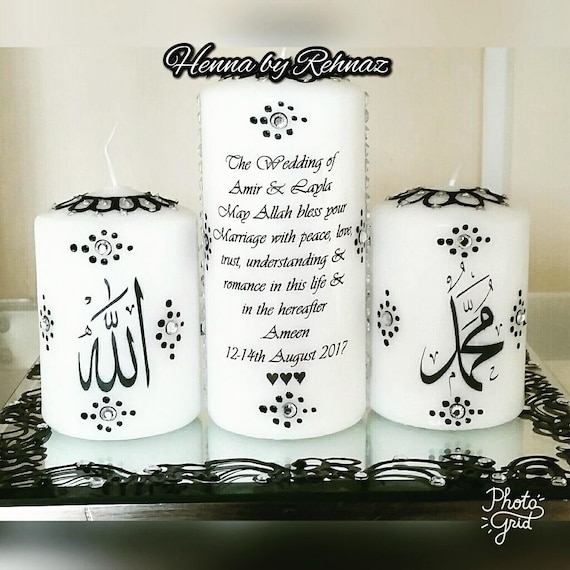 Henna by Rehnaz
The Wedding of
Amir & Layla
May Allah bless your
Marriage with peace, love,
trust, understanding &
romance in this life &
in the hereafter
Ameen
12-14th August 2017
♥♥♥
الله
محمد
Photo
Grid